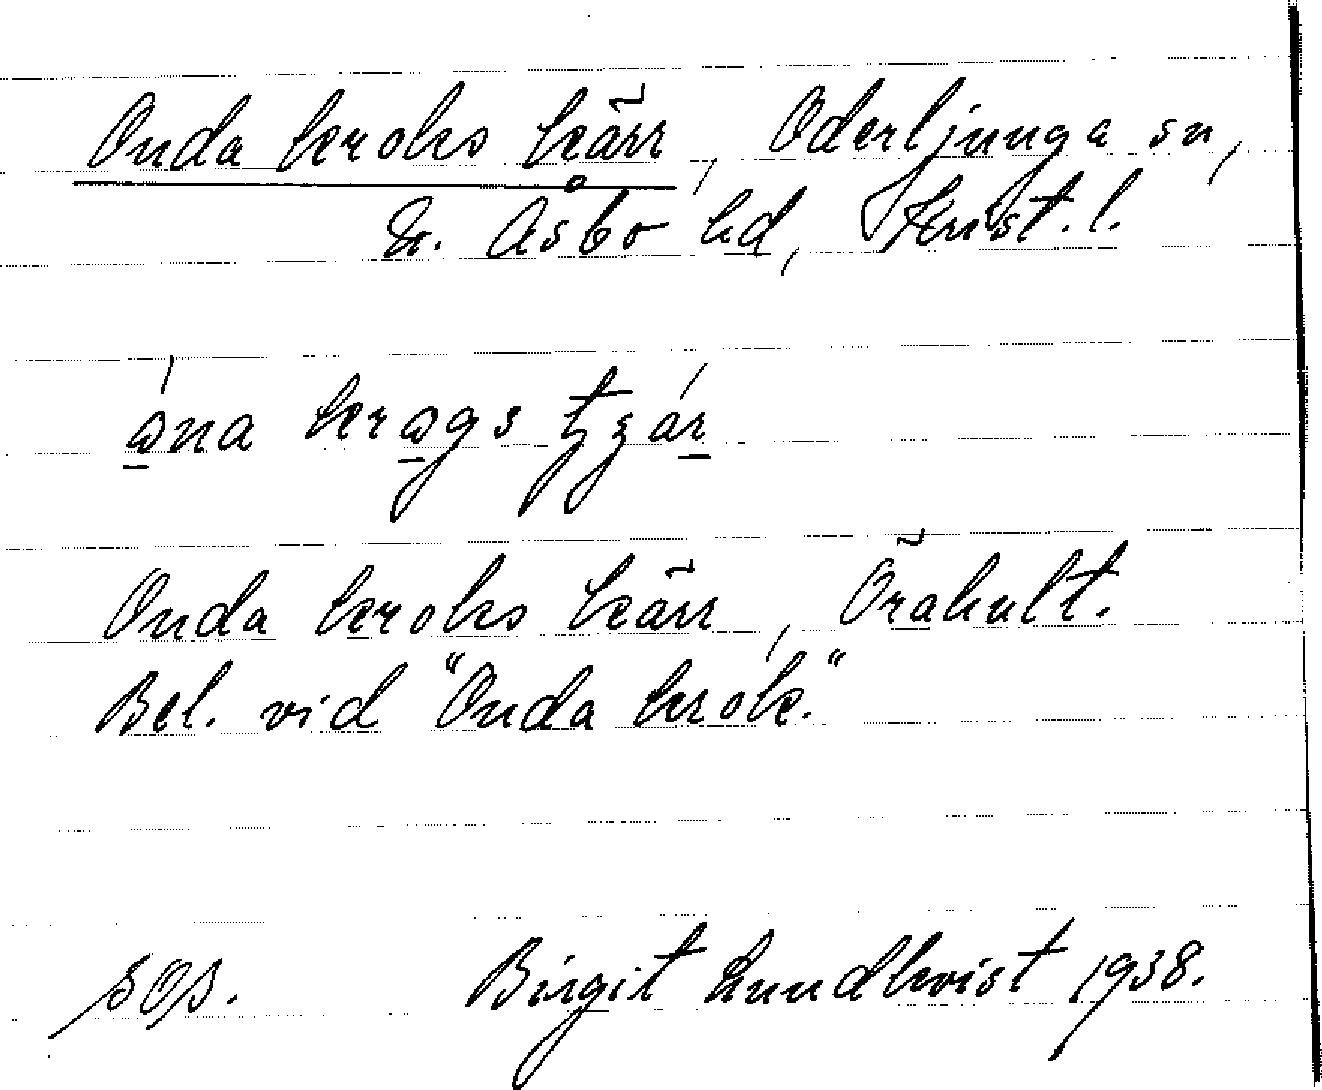 Onda kroks kärr, Oderljunga sn,
N. Åsbo hd, Krist. l.
Onda kroks kärr, Örahult.
Bel. vid "Onda krok."
SOS. Birgit Lundkvist 1938.